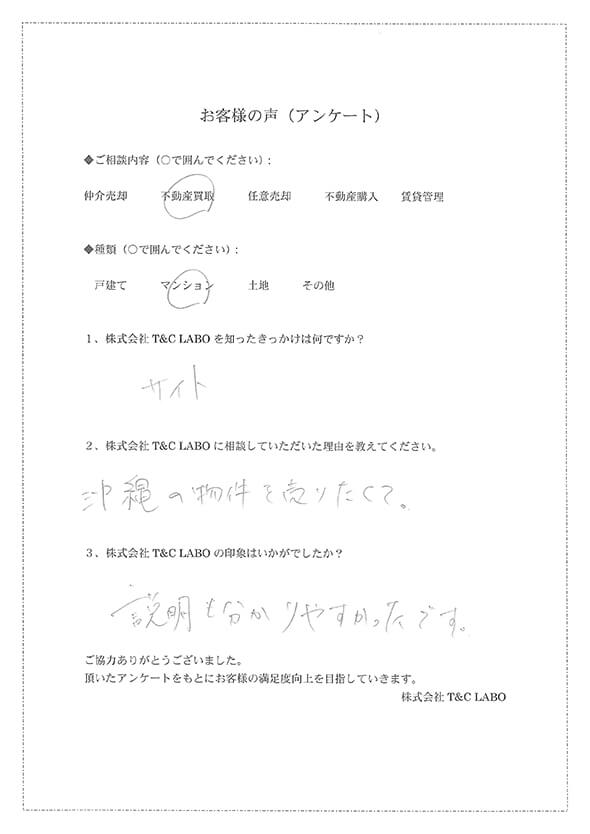 お客様の声（アンケート）
◆ご相談内容（○で囲んでください）:
仲介売却　不動産買取　任意売却　不動産購入　賃貸管理
◆種類（○で囲んでください）:
戸建て　マンション　土地　その他
１、株式会社 T&C LABO を知ったきっかけは何ですか？
サイト
２、株式会社 T&C LABO に相談していただいた理由を教えてください。
沖縄の物件を売りたくて。
３、株式会社 T&C LABO の印象はいかがでしたか？
説明も分かりやすかったです。
ご協力ありがとうございました。
頂いたアンケートをもとにお客様の満足度向上を目指していきます。
株式会社 T&C LABO